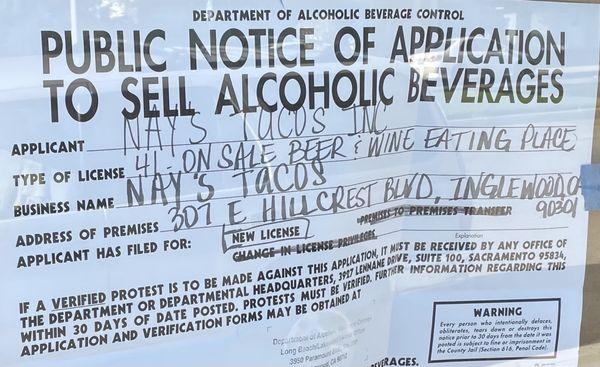 DEPARTMENT OF ALCOHOLIC BEVERAGE CONTROL
PUBLIC NOTICE OF APPLICATION
TO SELL ALCOHOLIC BEVERAGES
APPLICANT NAY'S TACOS INC
TYPE OF LICENSE 41 - ON SALE BEER & WINE EATING PLACE
BUSINESS NAME NAY'S TACOS
ADDRESS OF PREMISES 307 E HILLCREST BLVD, INGLEWOOD, 90301
APPLICANT HAS FILED FOR: NEW LICENSE PREMISES TO PREMISES TRANSFER
CHANGE IN LICENSE PRIVILEGES. Explanation
IF A VERIFIED PROTEST IS TO BE MADE AGAINST THIS APPLICATION, IT MUST BE RECEIVED BY ANY OFFICE OF
THE DEPARTMENT OR DEPARTMENTAL HEADQUARTERS, 3927 LENNANE DRIVE, SUITE 100, SACRAMENTO 95834,
WITHIN 30 DAYS OF DATE POSTED. PROTESTS MUST BE VERIFIED. FURTHER INFORMATION REGARDING THIS
APPLICATION AND VERIFICATION FORMS MAY BE OBTAINED AT
Department of
Long Beach/
3950 Paramount
WARNING
Every person who intentionally defaces,
obliterates, tears down or destroys this
notice prior to 30 days from the date it was
posted is subject to fine or imprisonment in
the County Jail (Section 616, Penal Code).